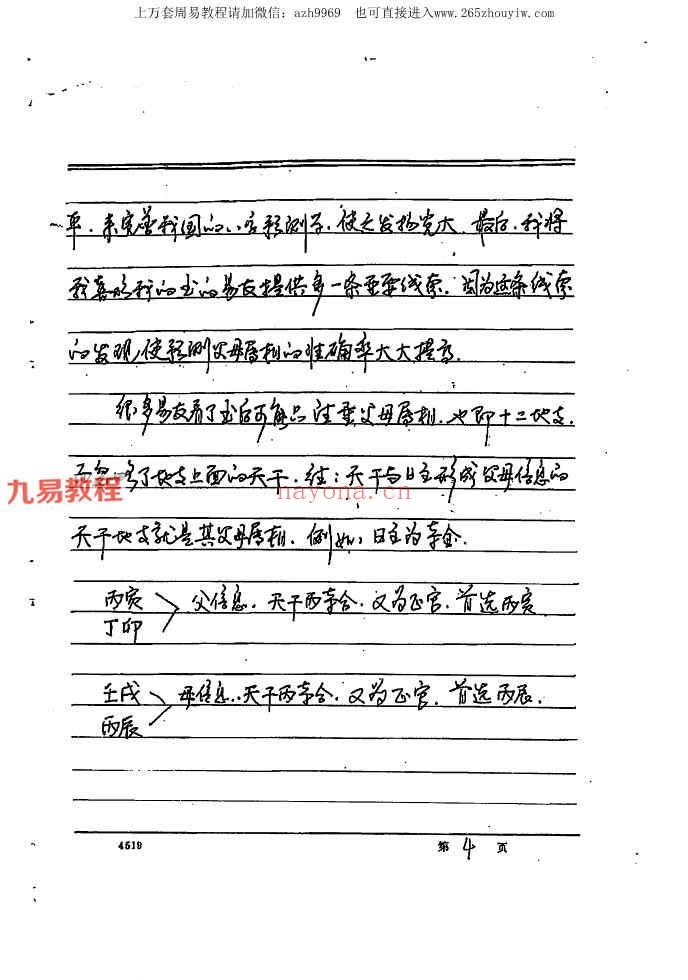 上万套周易教程请加微信：azh9969 也可直接进入www.265zhouyiw.com
平，来完善我国的八字预测学，使之发扬光大。最后，我将
我喜欢我的书的易友提供多一条重要线索。因为这条线索
的发现，使预测父母属相的准确率大大提高。
很多易友看了书后可能只注重父母属相，也即十二地支，
了地支上面的天干。注：天干与日主形成父母信息的
天干地支就是其父母属相。例如：日主为辛金。
丙寅
丁卯
父信息，天干丙辛合，又为正官，首选丙寅
壬戌
丙辰
母信息，天干丙辛合，又为正官，首选丙辰。
九易教程
hayona.cn
4519
第4页